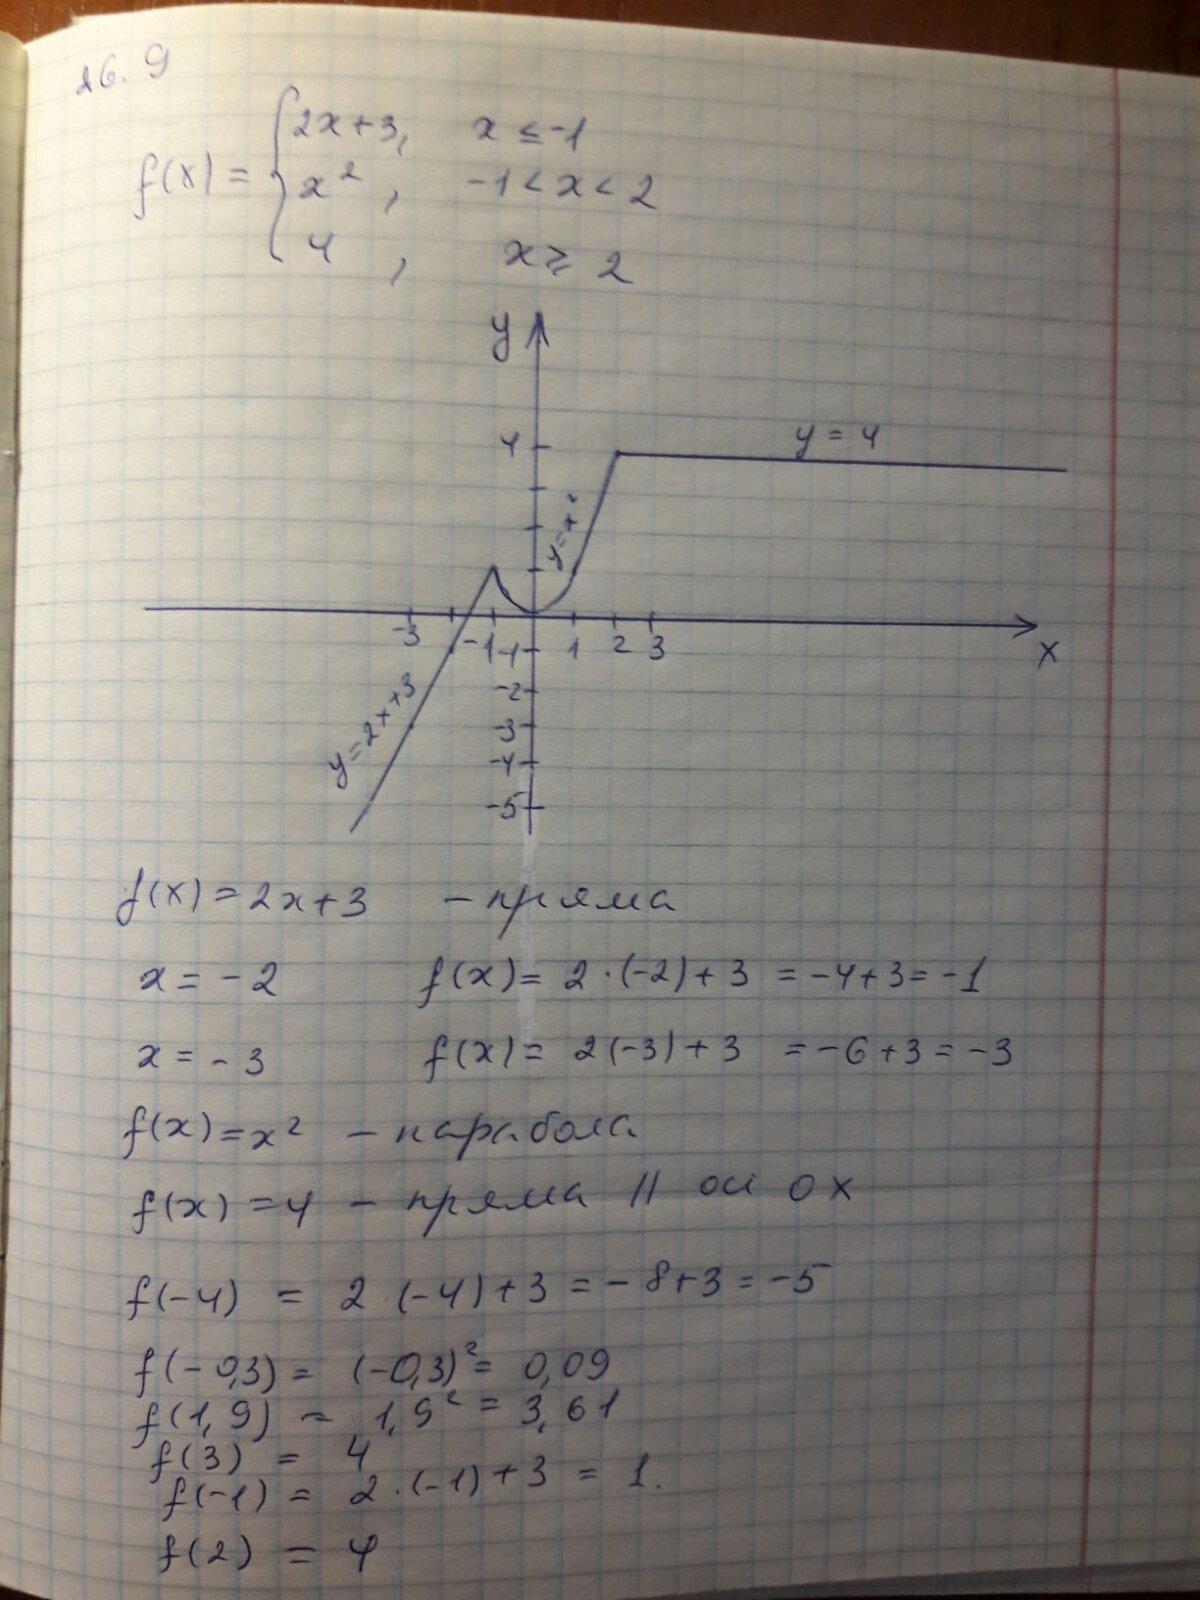 26.9
f(x) = { 2x+3, x ≤ -1
x², -1 < x < 2
4, x ≥ 2
y
4
y = 4
y = x²
-3 -1 1 2 3 x
-1
-2
-3
-4
-5
y = 2x+3
f(x) = 2x+3 - пряма
x = -2 f(x) = 2·(-2)+3 = -4+3 = -1
x = -3 f(x) = 2(-3)+3 = -6+3 = -3
f(x) = x² - парабола
f(x) = 4 - пряма || оси ox
f(-4) = 2·(-4)+3 = -8+3 = -5
f(-0,3) = (-0,3)² = 0,09
f(1,9) = 1,9² = 3,61
f(3) = 4
f(-1) = 2·(-1)+3 = 1.
f(2) = 4